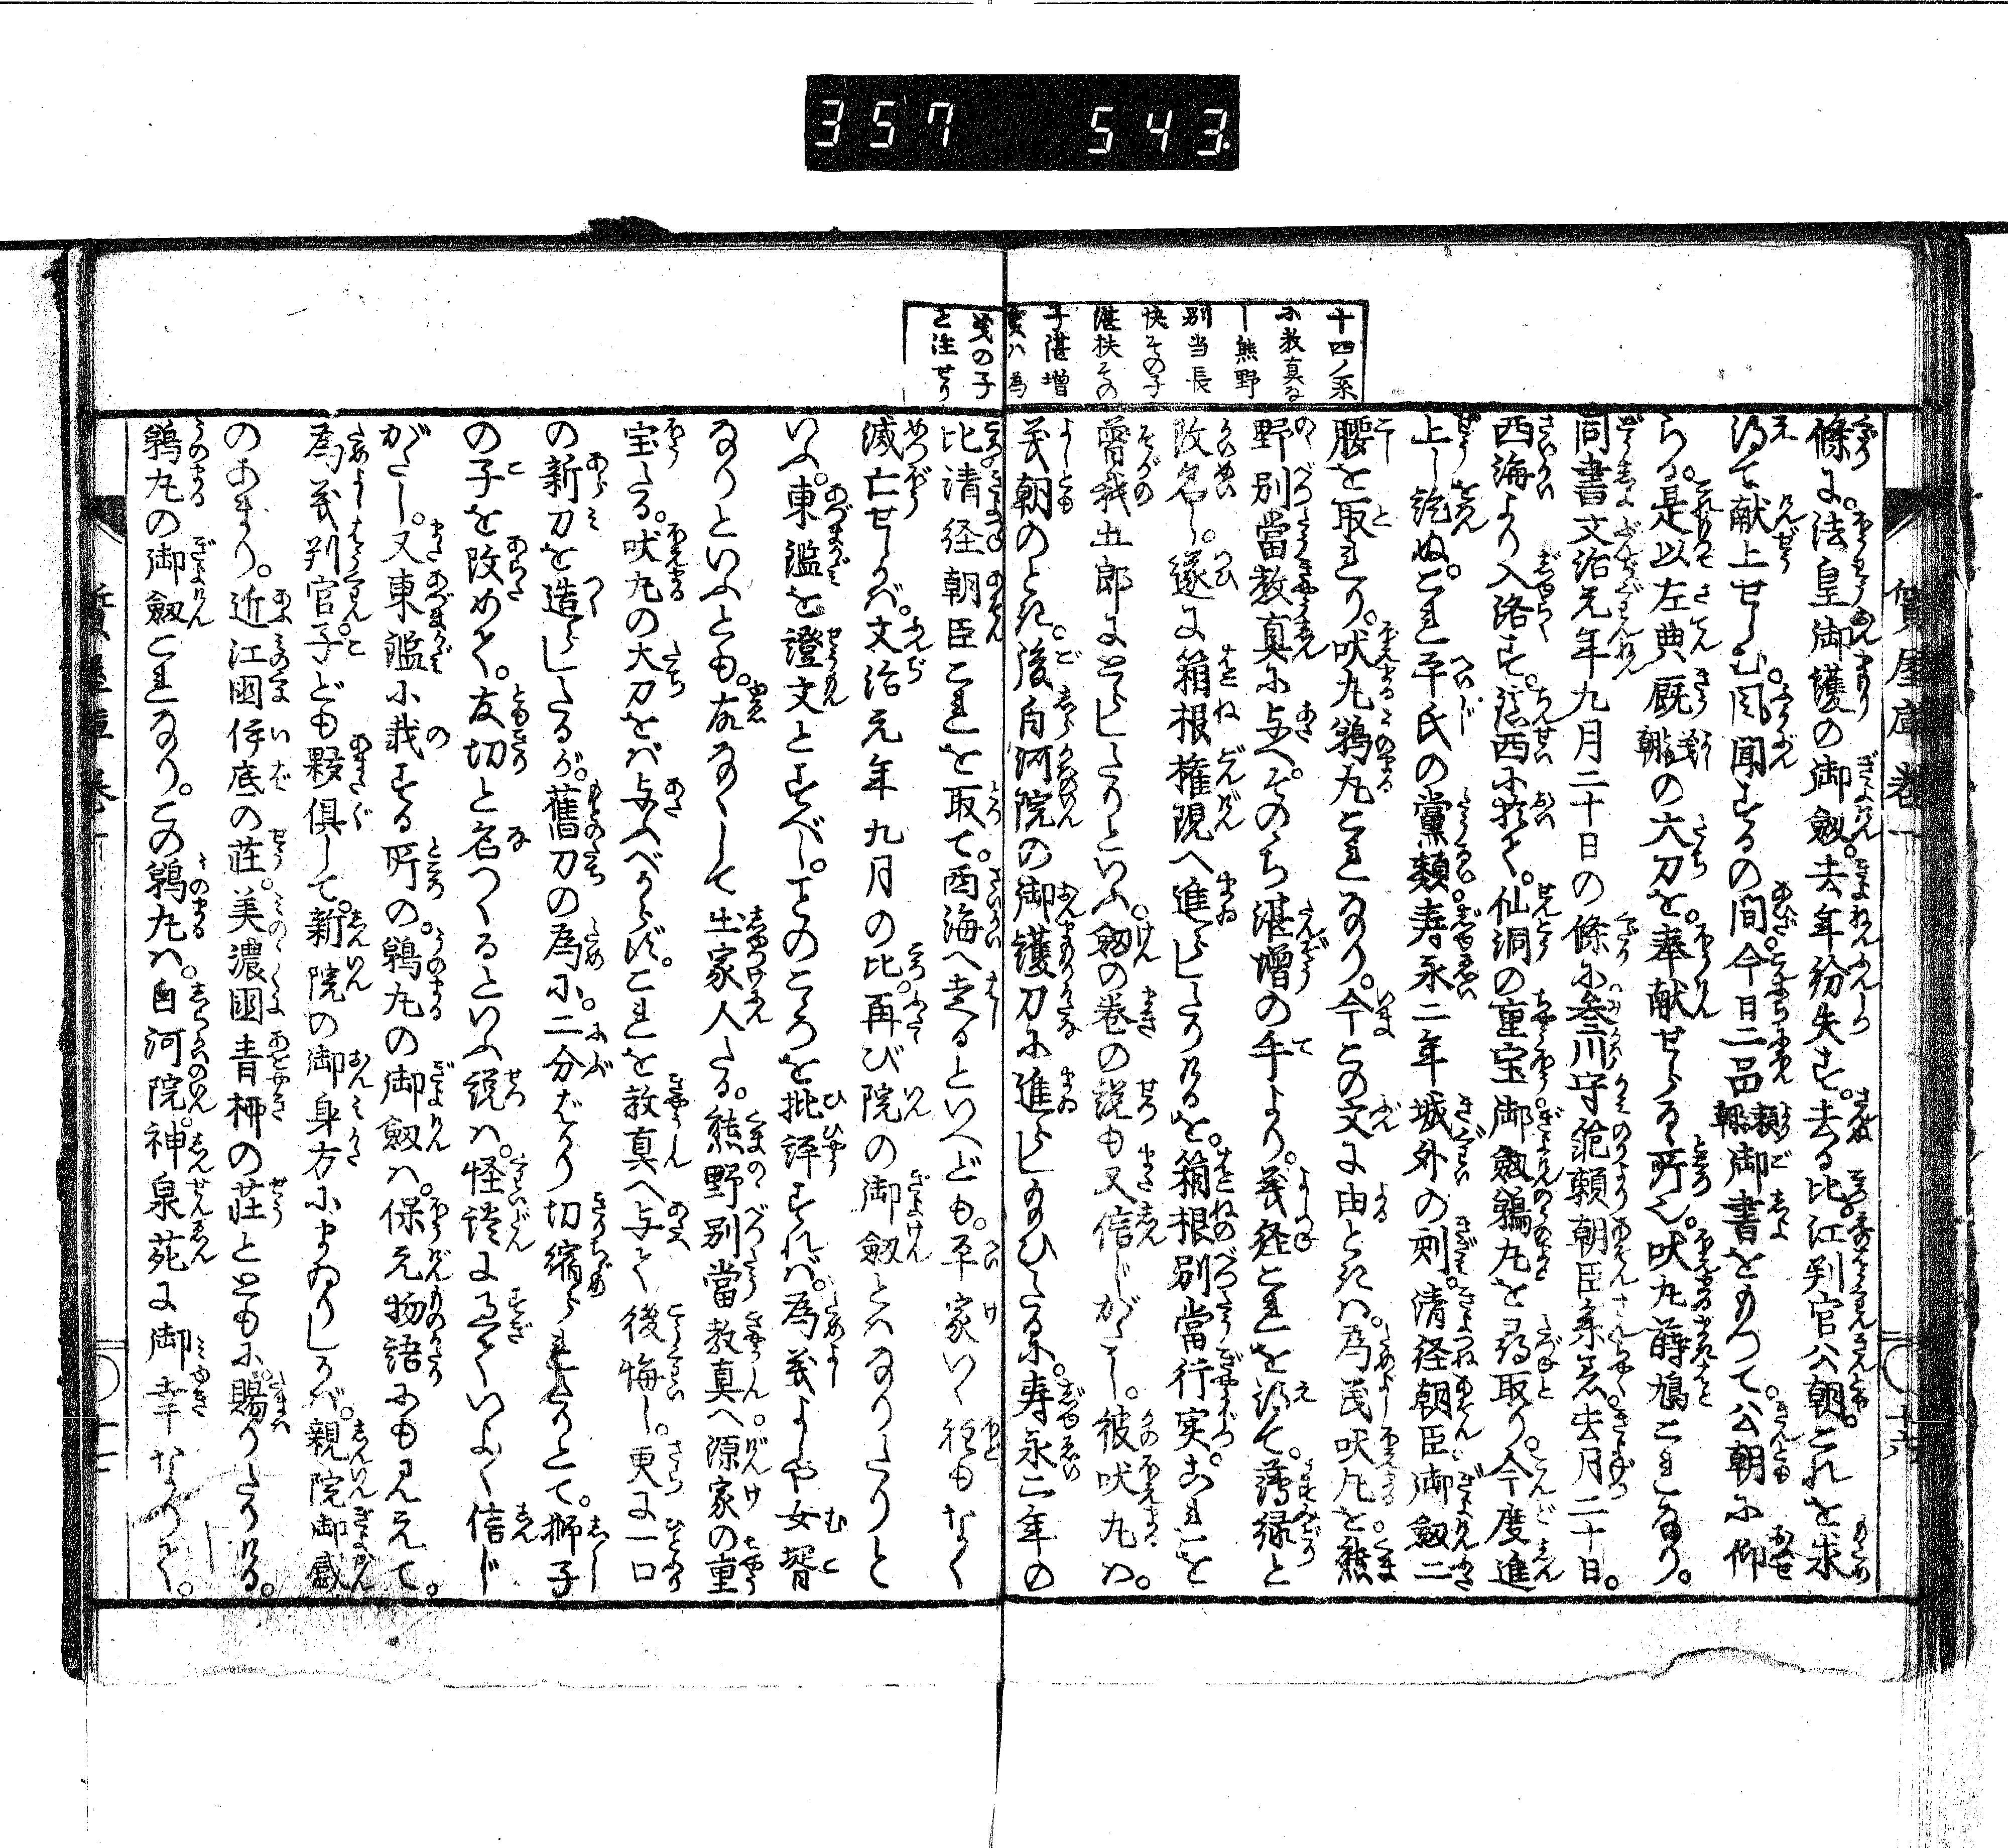 357 543
十四ノ系
に教真な
し熊野
別当長
快その子
湛快その
子湛増
實ハ為
義の子
と注せり
條に。法皇御護の御劔。去年紛失す。去る比江判官公朝。これを求
得て献上せしむ。風聞するの間今日二品頼朝御書をもつて。公朝に仰
らる。是以左典厩義朝の大刀を。奉献せらる所也。吠丸蒔鳩これなり。
同書文治元年九月二十日の條に。参川守範頼朝臣参著。去月二十日。
西海より入洛す。鎮西に於て。仙洞の重宝御劔鵜丸を尋取り。今度進
上し訖ぬ。これ平氏の黨類。寿永二年城外の刻。清経朝臣。御劔二
腰を取れり。吠丸鵜丸これなり。今この文に由ときハ。為義吠丸を熊
野別當教真に与へ。そののち湛増の手より。義経これを得て。薄緑と
改名し。遂に箱根権現へ進らしたりけるを。箱根別當行実。これを
曽我五郎にとらしたりといふ。劔の巻の説も又信じがたし。彼吠丸ハ。
義朝のとき。後白河院の御護刀に進らしめひたるに。寿永二年の
比清経朝臣これを取て。西海へ走るといへども。平家いく程もなく
滅亡せしかバ。文治元年九月の比。再び院の御劔とハなりたりと
いふ。東鑑を證文とすべし。このころを批評すれバ。為義よしや女婿
なりといふとも。故なくして出家人たる。熊野別當教真へ源家の重
宝たる。吠丸の大刀をバ与へべからず。これを教真へ与て後悔し。更に一口
の新刀を造らしたるが。舊刀の為に。二分ばかり切縮られたりとて。獅子
の子を改めて。友切と名つくるといふ説ハ。怪談に過ていよ〱信じ
がたし。又東鑑に載する所の。鵜丸の御劔ハ。保元物語にも見えて。
為義判官。子ども夥倶して。新院の御身方にまゐりしかバ。親院御感
のあまり。近江國伊庭の荘。美濃國青柳の荘とともに。賜りたりける。
鵜丸の御劔これなり。この鵜丸ハ。白河院。神泉苑に御幸なりて。